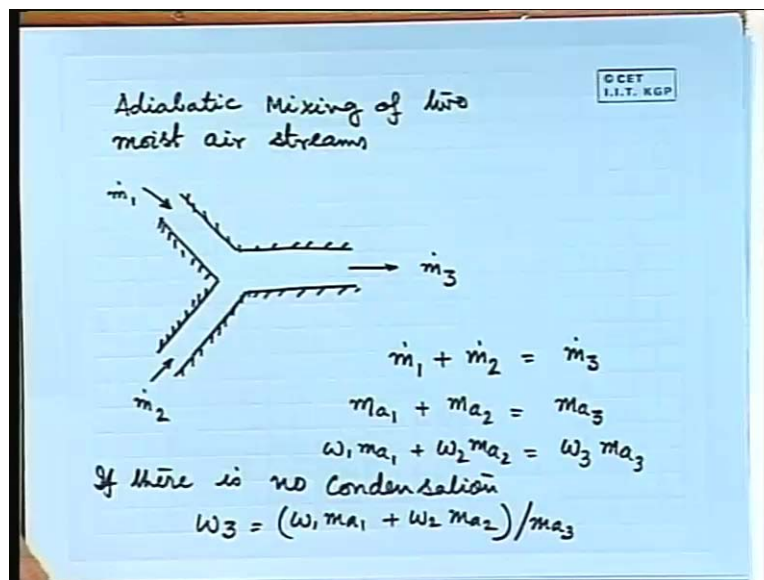 © CET
I.I.T. KGP
Adiabatic Mixing of two
moist air streams
ṁ₁
ṁ₃
ṁ₂
ṁ₁ + ṁ₂ = ṁ₃
ma₁ + ma₂ = ma₃
ω₁ ma₁ + ω₂ ma₂ = ω₃ ma₃
If there is no condensation
ω₃ = (ω₁ ma₁ + ω₂ ma₂)/ma₃